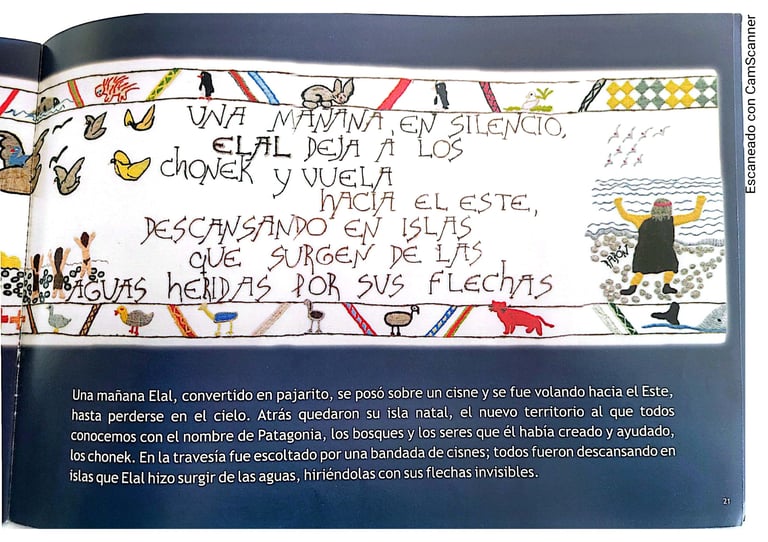 UNA MAÑANA, EN SILENCIO,
ELAL DEJA A LOS
chONEK Y VUELA
hACIA EL ESTE,
DESCANSANDO EN ISLAS
QUE SURGEN DE LAS
AGUAS hERIDAS POR SUS FLEChAS
Una mañana Elal, convertido en pajarito, se posó sobre un cisne y se fue volando hacia el Este,
hasta perderse en el cielo. Atrás quedaron su isla natal, el nuevo territorio al que todos
conocemos con el nombre de Patagonia, los bosques y los seres que él había creado y ayudado,
los chonek. En la travesía fue escoltado por una bandada de cisnes; todos fueron descansando en
islas que Elal hizo surgir de las aguas, hiriéndolas con sus flechas invisibles.
21
Escaneado con CamScanner